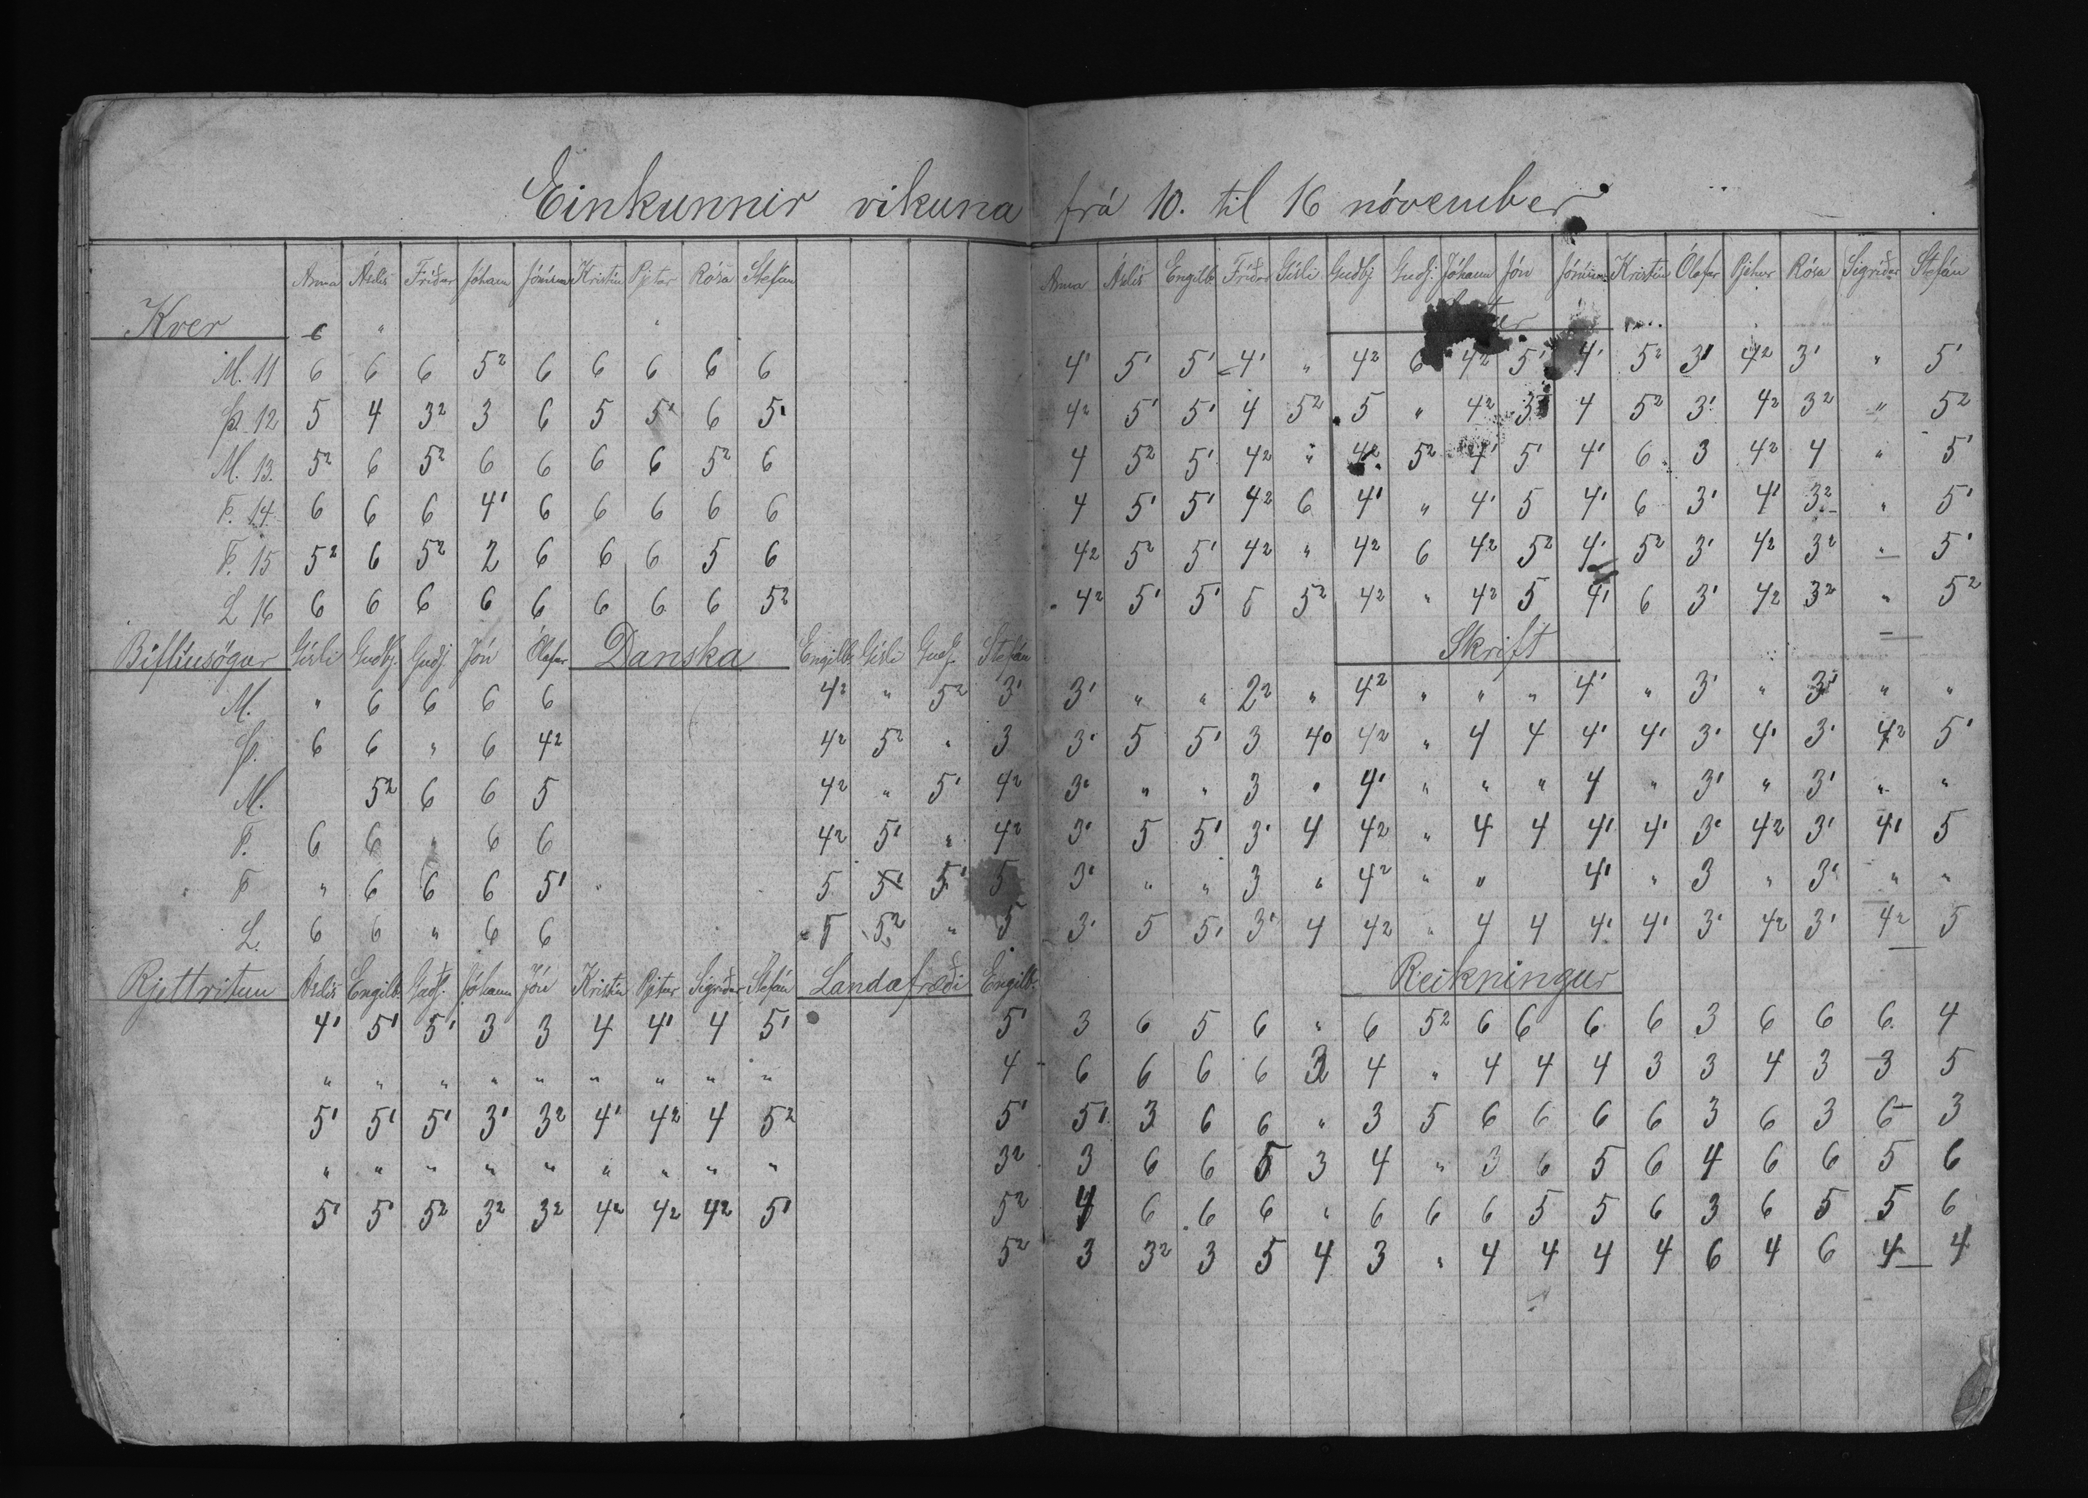 Einkunnir vikuna frá 10. til 16 nóvember
Anna Ásdís Fríður Jóhann Jónína Kristín Pjetur Rósa Stefán
Kver 6 " "
M. 11 6 6 6 5² 6 6 6 6 6
Þr. 12 5 4 3² 3 6 5 5¹ 6 5¹
M. 13. 5² 6 5² 6 6 6 6 5² 6
F. 14 6 6 6 4¹ 6 6 6 6 6
F. 15 5² 6 5² 2 6 6 6 5 6
L 16 6 6 6 6 6 6 6 6 5²
Biflíusögur Gísli Guðbj. Guðj. Jón Ólafur Danska Engilb. Gísli Guðj. Stefán
M. " 6 6 6 6 4² " 5² 3¹
Þ. 6 6 " 6 4² 4² 5² " 3
M. 5² 6 6 5 4² " 5¹ 4²
F. 6 6 " 6 6 4² 5¹ " 4²
F " 6 6 6 5¹ " 5 5¹ 5¹ 5
L. 6 6 " 6 6 5 5² " 5
Rjettritun Ásdís Engilb. Guðj. Jóhann Jón Kristín Pjetur Sigríður Stefán Landafræði Engilb.
4¹ 5¹ 5¹ 3 3 4 4¹ 4 5¹ 5¹
" " " " " " " " " 4
5¹ 5¹ 5¹ 3¹ 3² 4¹ 4² 4 5² 5¹
" " " " " " " " " 3²
5¹ 5¹ 5² 3² 3² 4² 4² 4² 5¹ 5²
5²
Anna Ásdís Engilb. Fríður Gísli Guðbj Guðj. Jóhann Jón Jónína Kristín Ólafur Pjetur Rósa Sigríður Stefán
4¹ 5¹ 5¹ 4¹ " 4² 6 4² 5¹ 4¹ 5² 3¹ 4² 3¹ " 5¹
4² 5¹ 5¹ 4 5² 5 " 4² 4 5² 3¹ 4² 3² " 5²
4 5² 5¹ 4² " 4² 5² 4¹ 5¹ 4¹ 6 3 4² 4 " 5¹
4 5¹ 5¹ 4² 6 4¹ " 4¹ 5 4¹ 6 3¹ 4¹ 3² " 5¹
4² 5² 5¹ 4² " 4² 6 4² 5² 4¹ 5² 3¹ 4² 3² " 5¹
4² 5¹ 5¹ 5 5² 4² " 4² 5 4¹ 6 3¹ 4² 3² " 5²
Skrift
3¹ " " 2² " 4² " " " 4¹ " 3¹ " 3¹ " "
3¹ 5 5¹ 3 4⁰ 4² " 4 4 4¹ 4¹ 3¹ 4¹ 3¹ 4² 5¹
3¹ " " 3 " 4¹ " " " 4 " 3¹ " 3¹ " "
3¹ 5 5¹ 3¹ 4 4² " 4 4 4¹ 4¹ 3¹ 4² 3¹ 4¹ 5
3¹ " " 3 " 4² " " 4¹ " 3 " 3¹ " "
3¹ 5 5¹ 3¹ 4 4² " 4 4 4¹ 4¹ 3¹ 4² 3¹ 4² 5
Reikningur
3 6 5 6 " 6 5² 6 6 6 6 3 6 6 6 4
6 6 6 6 4 " 4 4 4 3 3 4 3 3 5
5¹ 3 6 6 " 3 5 6 6 6 6 3 6 3 6 3
3 6 6 5 3 4 " 3 6 5 6 4 6 6 5 6
4 6 6 6 " 6 6 6 5 5 6 3 6 5 5 6
3 3² 3 5 4 3 " 4 4 4 4 6 4 6 4 4